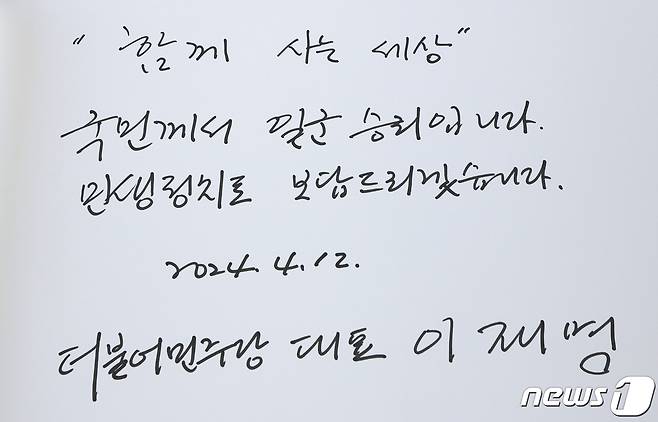 "함께 사는 세상"
국민께서 일군 승리입니다.
민생정치로 보답드리겠습니다.
2024. 4. 12.
더불어민주당 대표 이재명
news1